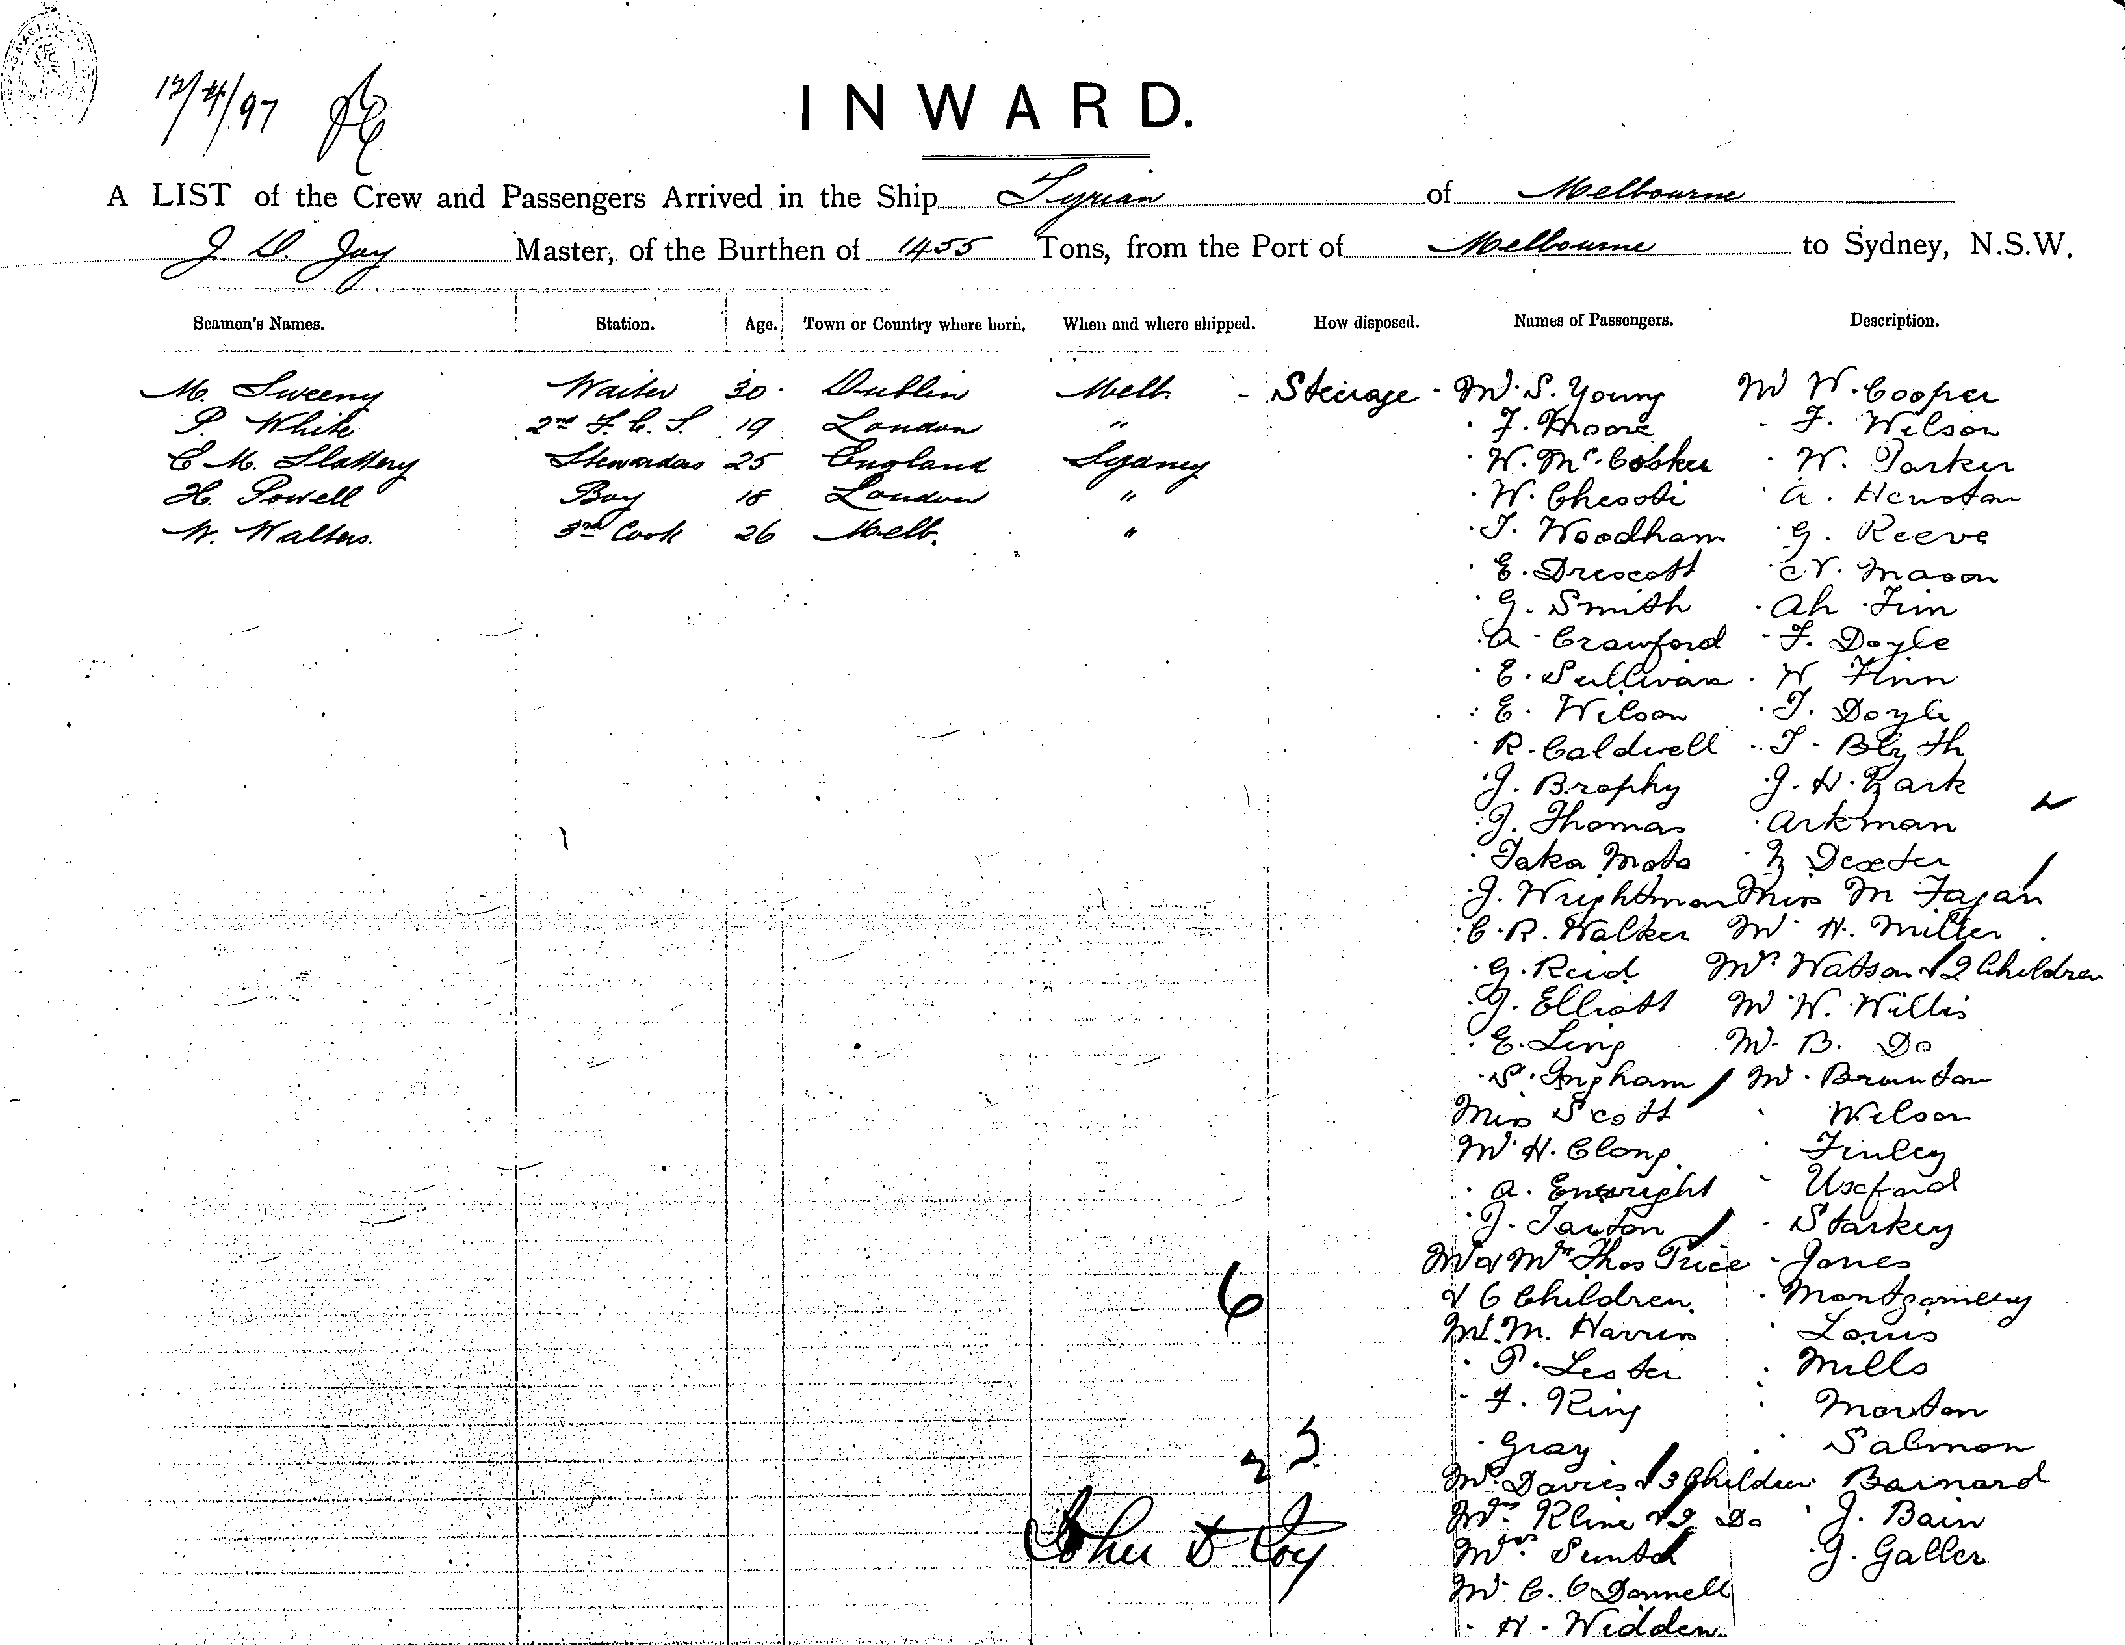 12/4/97
INWARD.
A LIST of the Crew and Passengers Arrived in the Ship Tyrian of Melbourne
J. D. Joy Master, of the Burthen of 1455 Tons, from the Port of Melbourne to Sydney, N.S.W.
Seamen's Names. Station. Age. Town or Country where born. When and where shipped. How disposed. Names of Passengers. Description.
M. Sweeny Waiter 30 Dublin Melb. - Steerage - Mr. S. Young Mr W. Cooper
P. White 2nd F. C. S. 19 London " F. Moore F. Wilson
C M. Slattery Stewardess 25 England Sydney W. Mc. Cosker W. Parker
H. Powell Boy 18 London " W. A. Henstan
W. Walters. 3rd Cook 26 Melb. " T. Woodham G. Reeve
E. Drescott N. Mason
G. Smith Ah Tim
A. Crawford F. Doyle
E. Sullivan W Flinn
E. Wilson T. Doyle
R. Caldwell T. Blyth
J. Brophy J. H.
J. Thomas Arkman
Taka Moto Dexter
J. Wrightman Miss M Fagan
C. R. Walker Mr H. Miller
G. Reid Mrs Watson & 2 Children
J. Elliott Mr W. Willis
E. Ling Mr. B. Do
S. Ingham Mr. Brunton
Miss Scott Wilson
Mr H. Clong. Finley
A. Enwright Useford
J. Starkey
Mr & Mrs Thos Price Jones
& 6 Children. Montgomery
6
Mr. M. Harris Louis
P. Lester Mills
F. King Morton
Gray Salmon
Mrs Davies & 3 Children Barnard
Mrs. Kline & 2 Do J. Bain
John D Joy
Mrs. J. Galler
Mr. C. O Donnell
H. Widden.